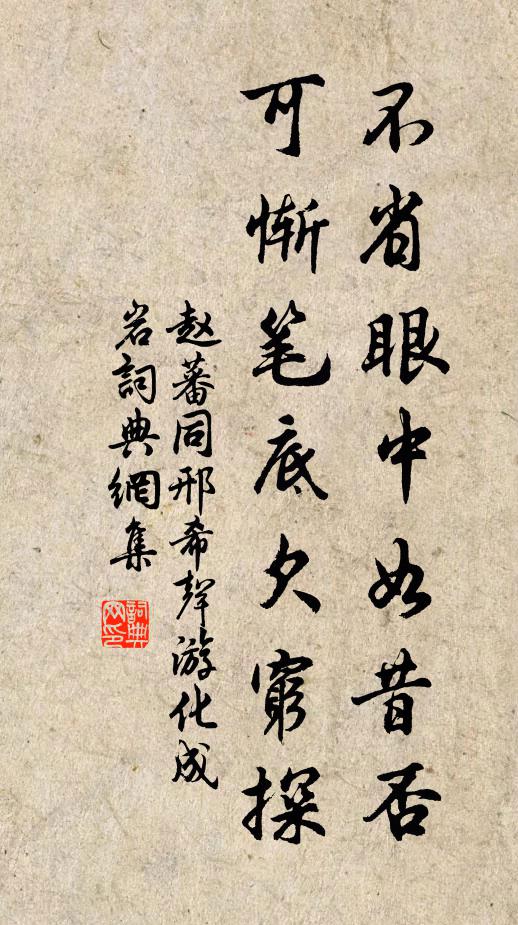 不省眼中如昔否
可惭笔底欠穷探
赵蕃同邢希声游化成
岩詞典網集
詞典
网印